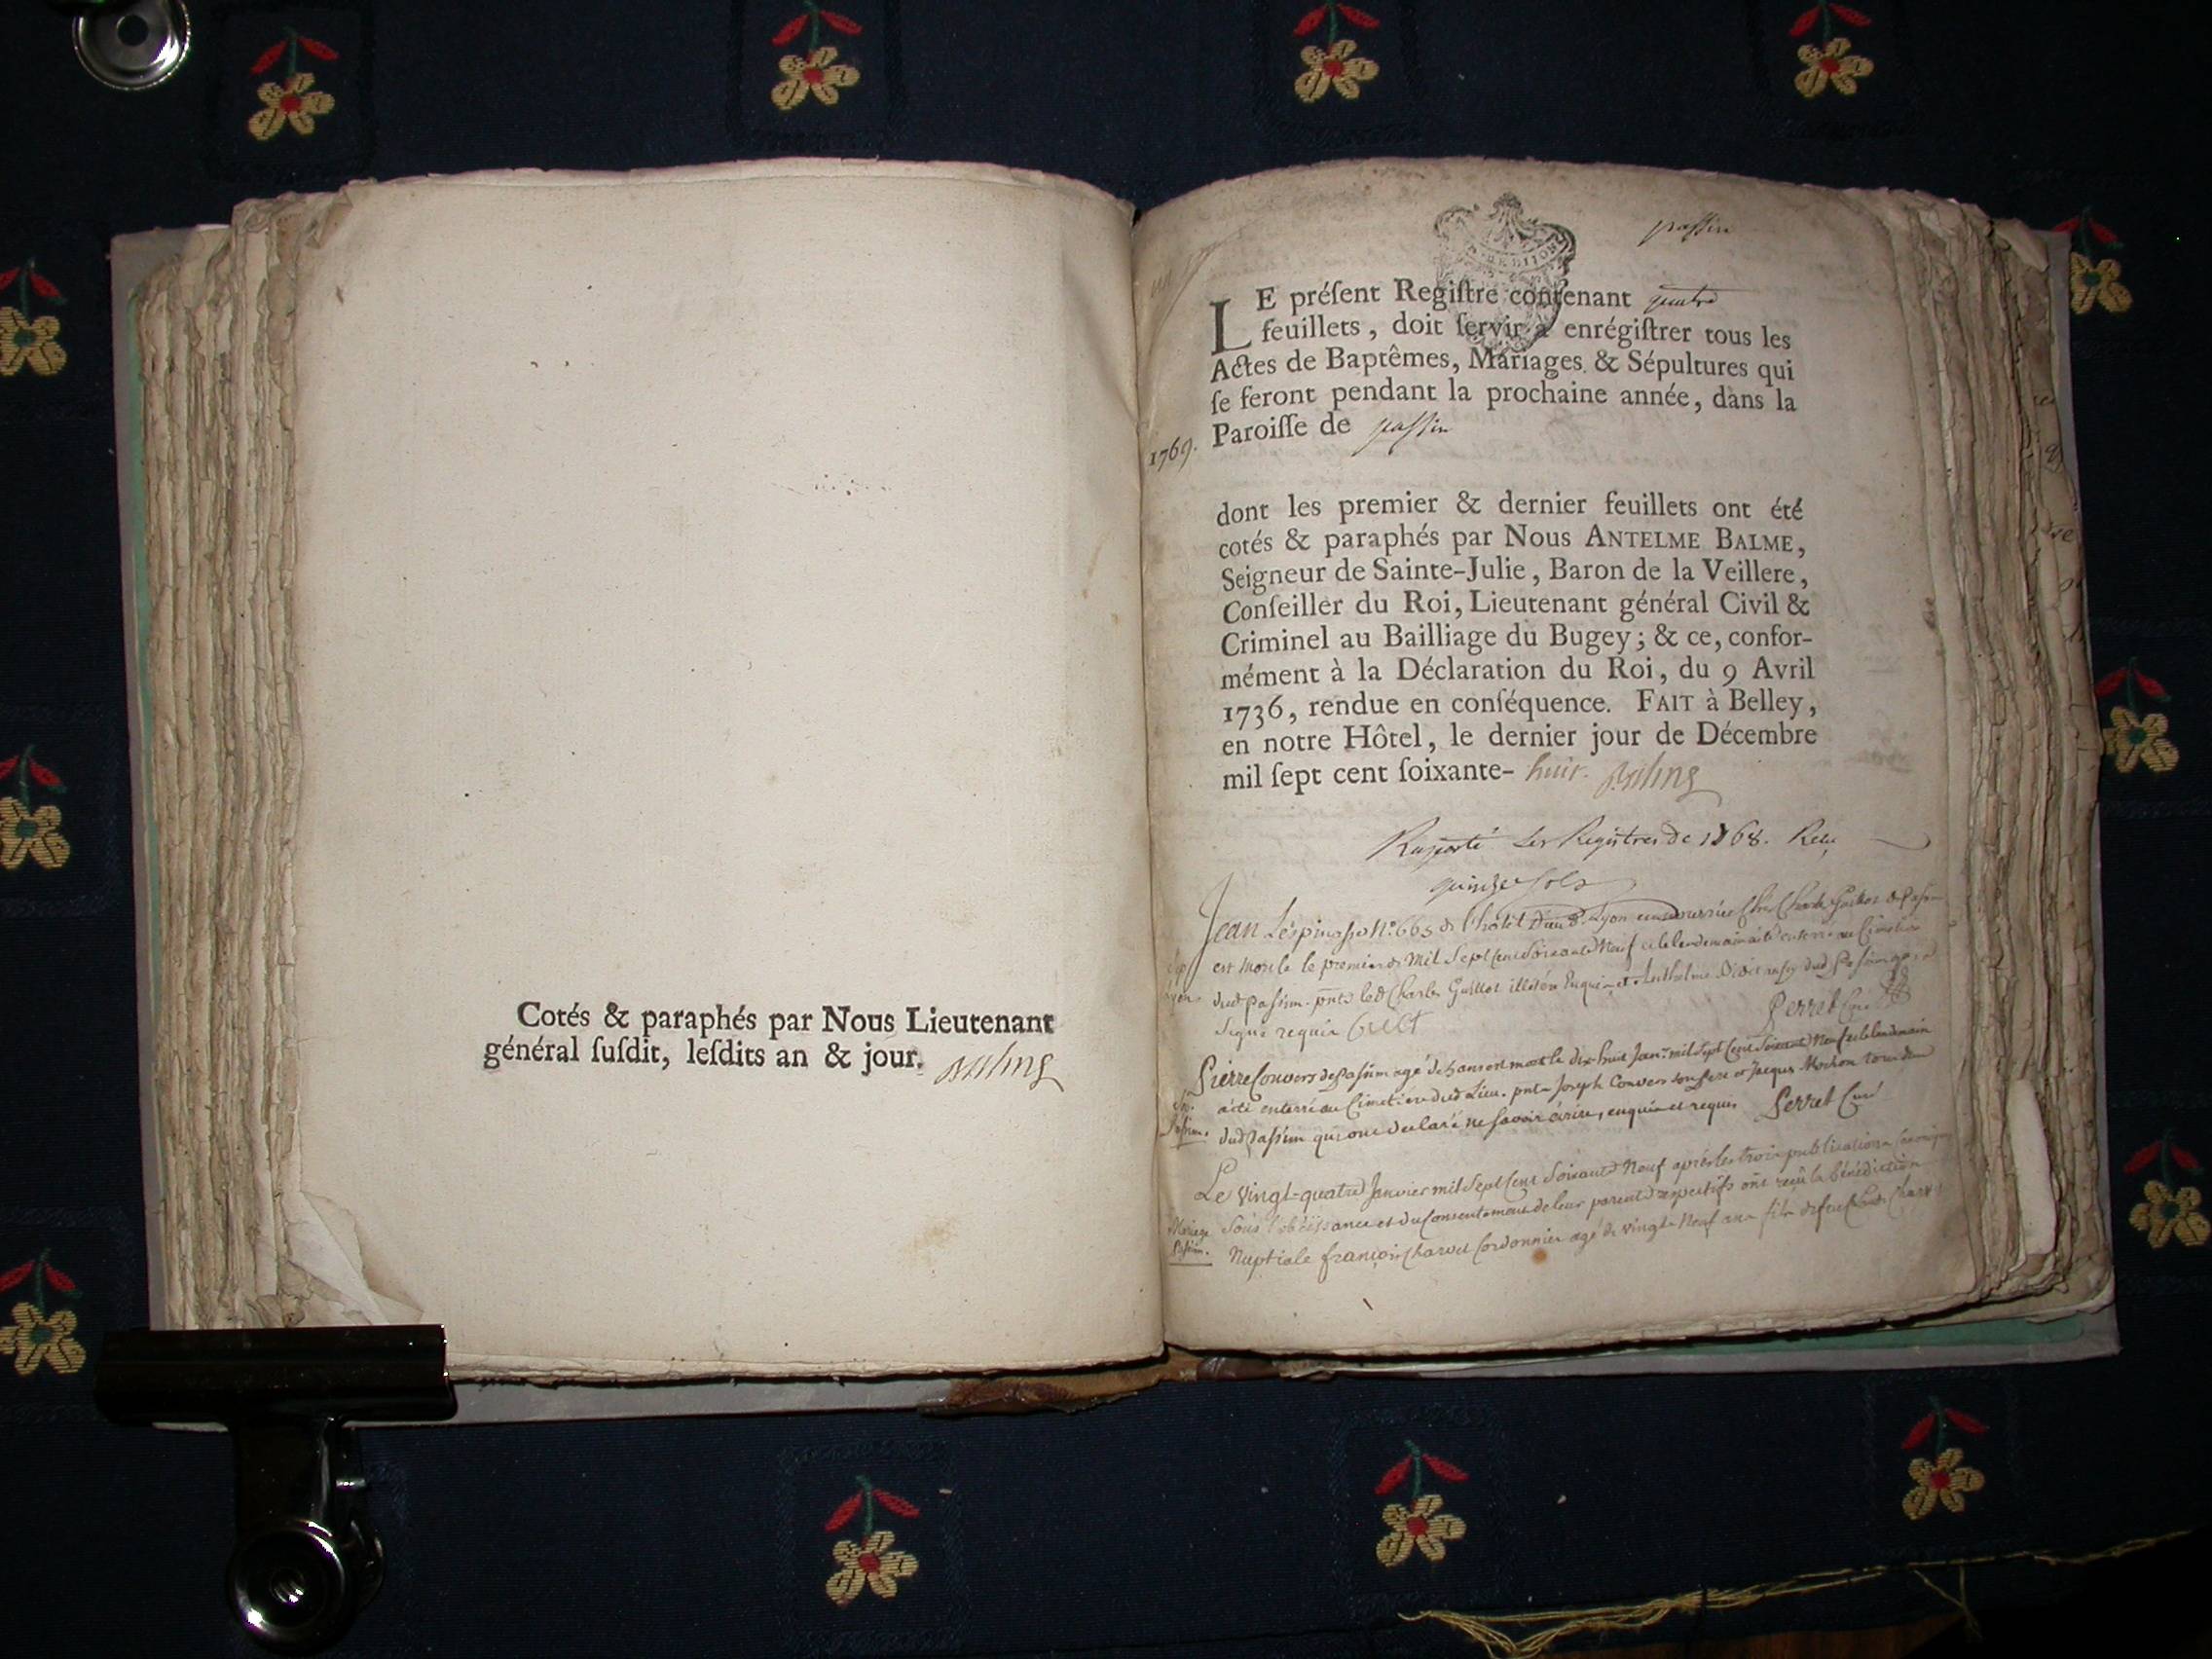 Cotés & paraphés par Nous Lieutenant
général ſuſdit, leſdits an & jour. Balme
passin
LE préſent Regiſtre contenant quatre
feuillets, doit ſervir à enrégiſtrer tous les
Actes de Baptêmes, Mariages & Sépultures qui
ſe feront pendant la prochaine année, dans la
Paroiſſe de passin
1769.
dont les premier & dernier feuillets ont été
cotés & paraphés par Nous ANTELME BALME,
Seigneur de Sainte-Julie, Baron de la Veillere,
Conſeiller du Roi, Lieutenant général Civil &
Criminel au Bailliage du Bugey; & ce, confor-
mément à la Déclaration du Roi, du 9 Avril
1736, rendue en conſéquence. FAIT à Belley,
en notre Hôtel, le dernier jour de Décembre
mil ſept cent ſoixante- huit. Balme
Raporté les Registres de 1768. Reçu
quinze sols
Jean Lespinasse N.° 665 de l'hôtel Dieu de Lyon en nourrice Chés Charle Guillot de Passin
est mort le premier mil sept Cent Soixante Neuf et le lendemain a été enterré au Cimetière
dud passin. pnts led Charles Guillot illitéré Enquis et Anthelme
signé requis
Perret Curé
Pierre Convers de passim agé de ans est mort le dix-huit Janr. mil sept Cent Soixante Neuf et le lendemain
a été enterré au Cimetière dud Lieu. pnts Joseph Convers son frere et Jacques Mochon tous deux
dud passim qui ont declaré ne savoir écrire, enquis et requis Perret Curé
Le vingt-quatre Janvier mil sept Cent Soixante Neuf après les trois publications
Mariage Sous l'obéissance et du Consentement de leur parents respectifs ont reçû la bénédiction
Passim. Nuptiale françois Charvet Cordonnier agé de vingt Neuf ans fils de feu